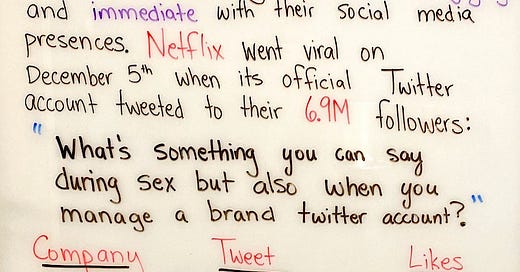 and immediate with their social media
presences. Netflix went viral on
December 5th when its official Twitter
account tweeted to their 6.9M followers:
"What's something you can say
during sex but also when you
manage a brand twitter account?"
Company Tweet Likes